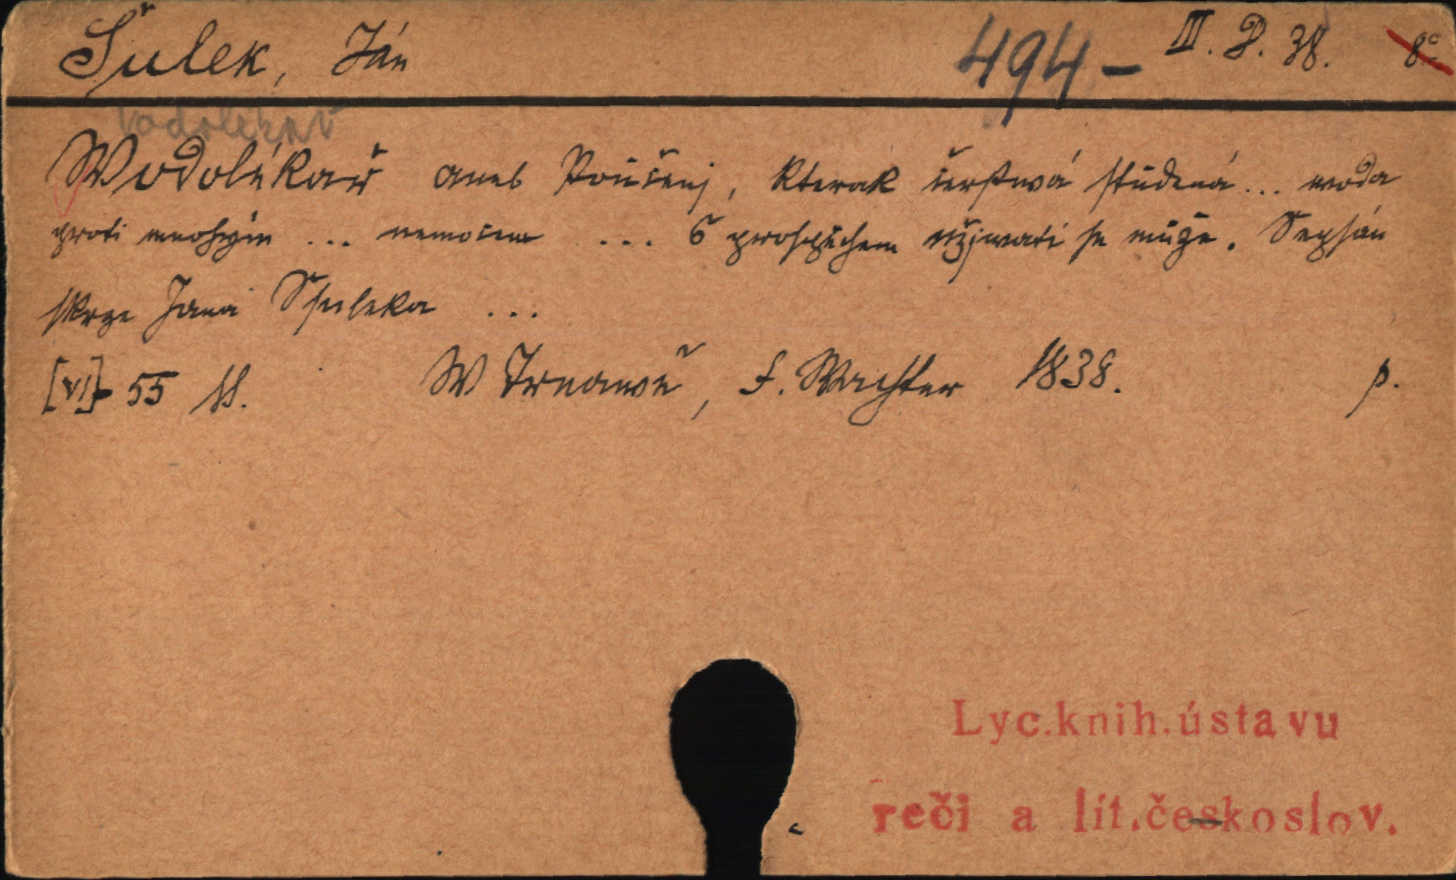 Šulek, Ján 494- III. D. 38. 8°
Vodolekář
Wodolékař aneb Poučenj, kterak čerstwá studená... woda
proti mnohým ... nemocem ... S prospěchem vžjwati se může. Sepsán
skrze Jana Ssuleka ...
[VI]- 55 ss. W Trnawě, f. Wachter 1838. p.
Lyc.knih.ústavu
reči a lit.českoslov.